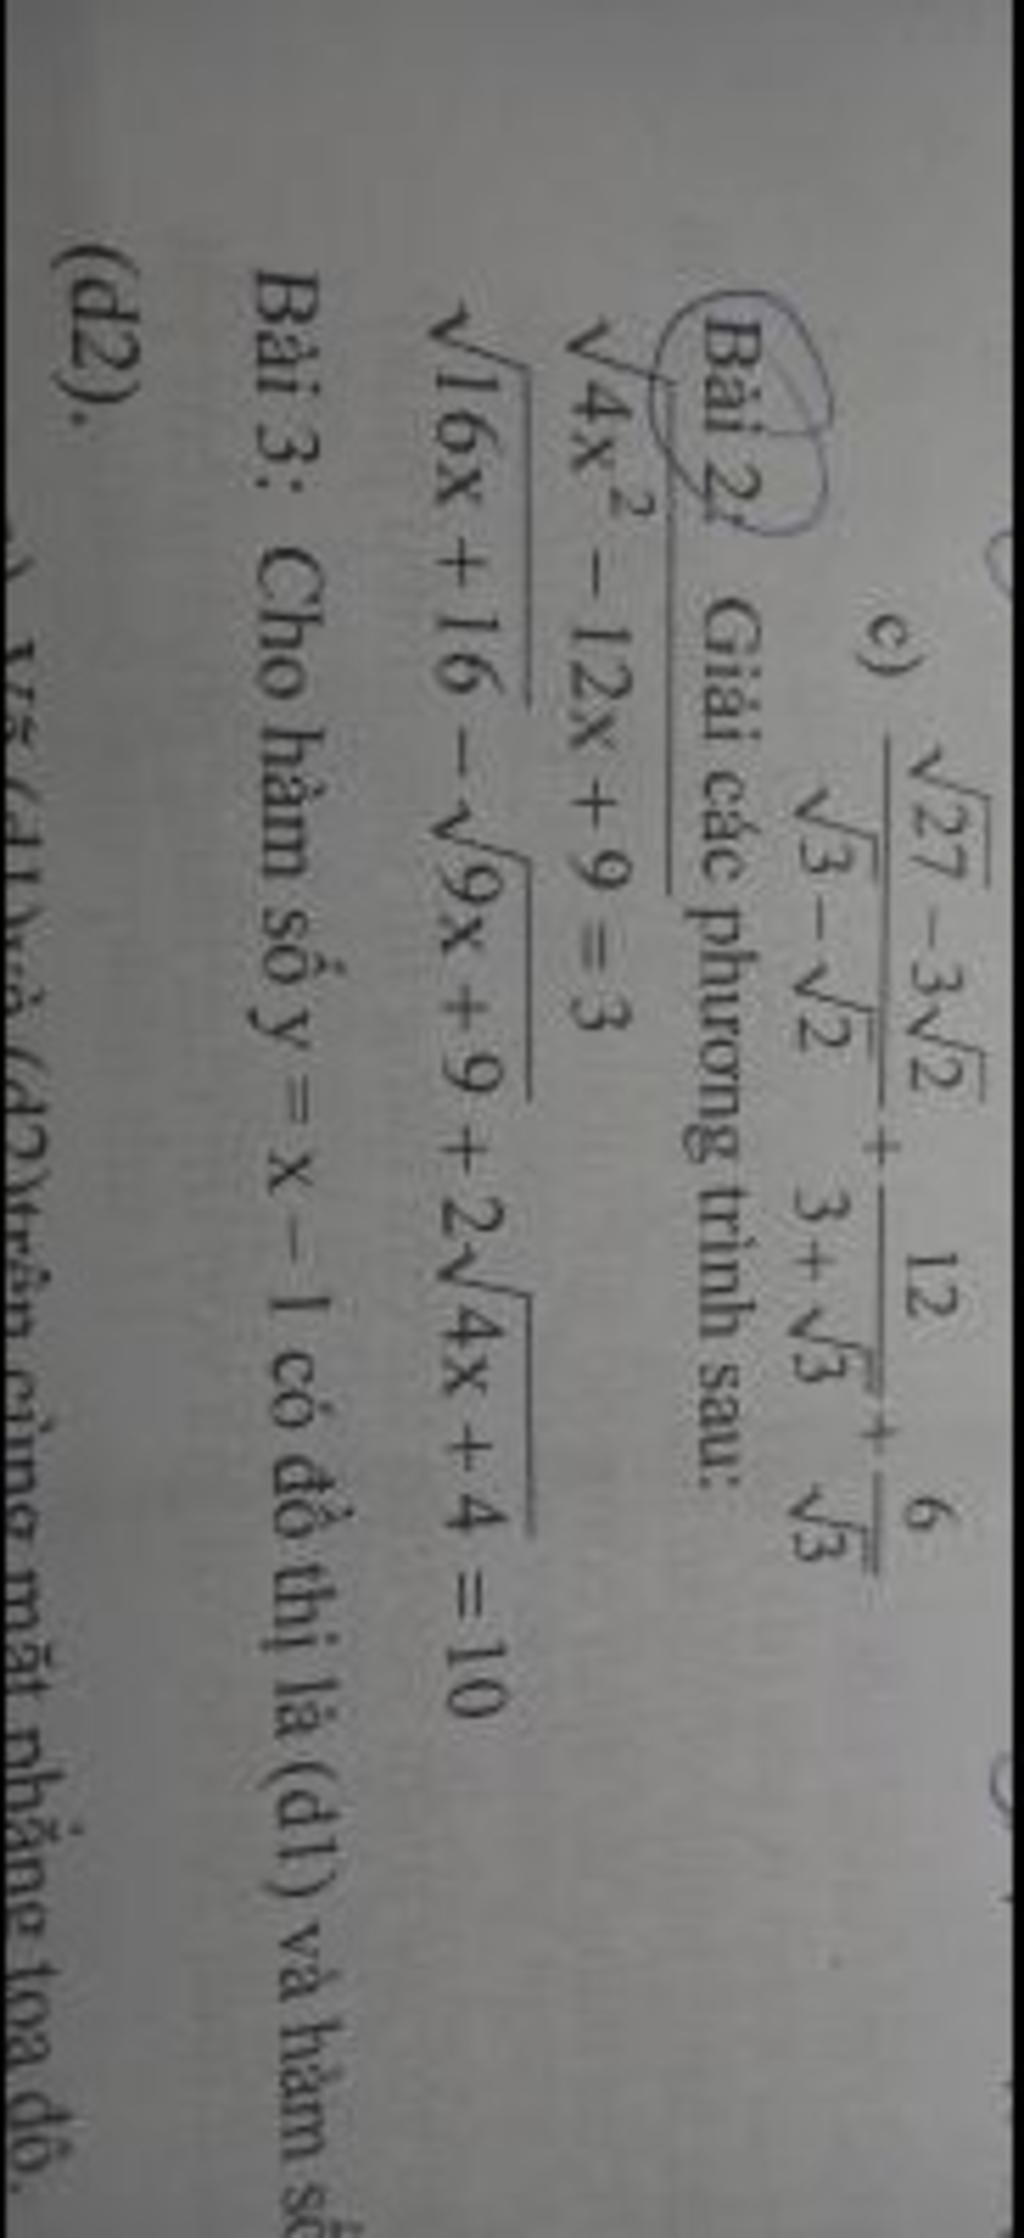 c) \frac{\sqrt{27} - 3\sqrt{2}}{\sqrt{3} - \sqrt{2}} + \frac{12}{3 + \sqrt{3}} + \frac{6}{\sqrt{3}}
Bài 2: Giải các phương trình sau:
\sqrt{4x^2 - 12x + 9} = 3
\sqrt{16x + 16} - \sqrt{9x + 9} + 2\sqrt{4x + 4} = 10
Bài 3: Cho hàm số y = x – 1 có đồ thị là (d1) và hàm số
(d2).
Vẽ (d1) và (d2) trên cùng mặt phẳng tọa độ.